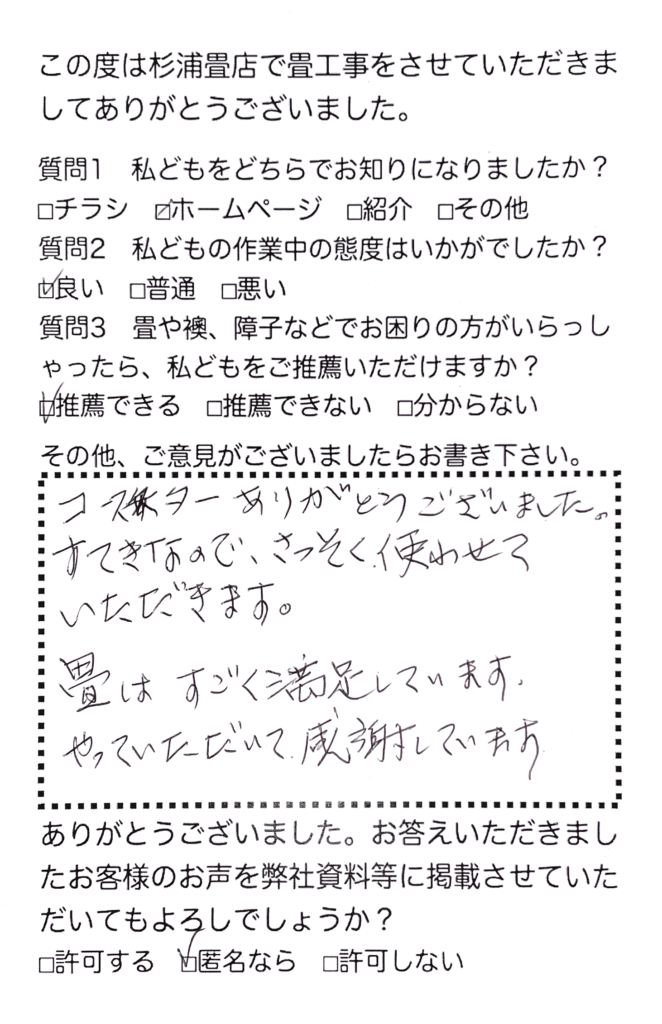 この度は杉浦畳店で畳工事をさせていただきま
してありがとうございました。
質問1 私どもをどちらでお知りになりましたか？
□チラシ ☑ホームページ □紹介 □その他
質問2 私どもの作業中の態度はいかがでしたか？
☑良い □普通 □悪い
質問3 畳や襖、障子などでお困りの方がいらっし
ゃったら、私どもをご推薦いただけますか？
☑推薦できる □推薦できない □分からない
その他、ご意見がございましたらお書き下さい。
コースター ありがとうございました。
すてきなので、さっそく使わせて
いただきます。
畳は すごく満足しています。
やっていただいて、感謝しています
ありがとうございました。お答えいただきまし
たお客様のお声を弊社資料等に掲載させていた
だいてもよろしでしょうか？
□許可する ☑匿名なら □許可しない